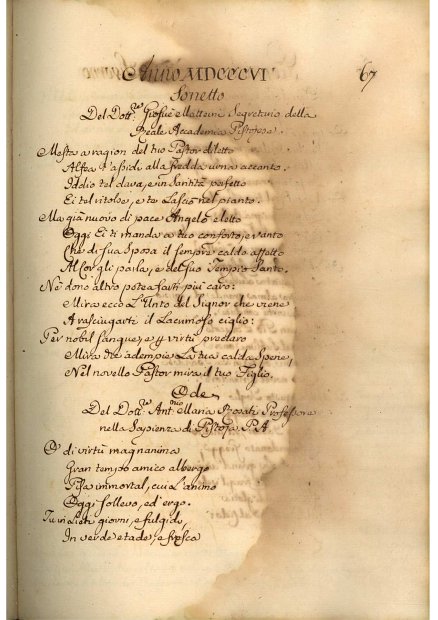 67
Anno MDCCCVI
Sonetto
Del Dott.re Giosuè Matteini Segretario della
Reale Accademia Pistojese.
Mesta a ragion del tuo Pastor diletto
Alfea t'assidi alla fredda urna accanto.
Iddio tel dava, e in santità perfetto
Ei tel ritolse, e te lasciò nel pianto.
Ma già nuovo di pace Angelo eletto
Oggi Ei ti manda a tuo conforto, e vanto
Che di sua Sposa il sempre caldo affetto
Al Cor gli parla, e del suo Tempio Santo.
Nè dono altro potea farti piu caro:
Mira ecco L'Unto del Signor che viene
A rasciugarti il Lacrimoso ciglio:
Per nobil sangue, e virtù preclaro
Mira che adempie La tua calda Spene,
Nel novello Pastor mira il tuo Figlio.
Ode
Del Dott.re Ant.nio Maria Rosati Professore
nella Sapienza di Pistoja P.A.
O di virtù magnanima
Gran tempo amico albergo
Pisa immortal, cui L'animo
Oggi sollevo, ed ergo.
Tu in Lieti giorni, e fulgidi,
In verde etade, e fresca